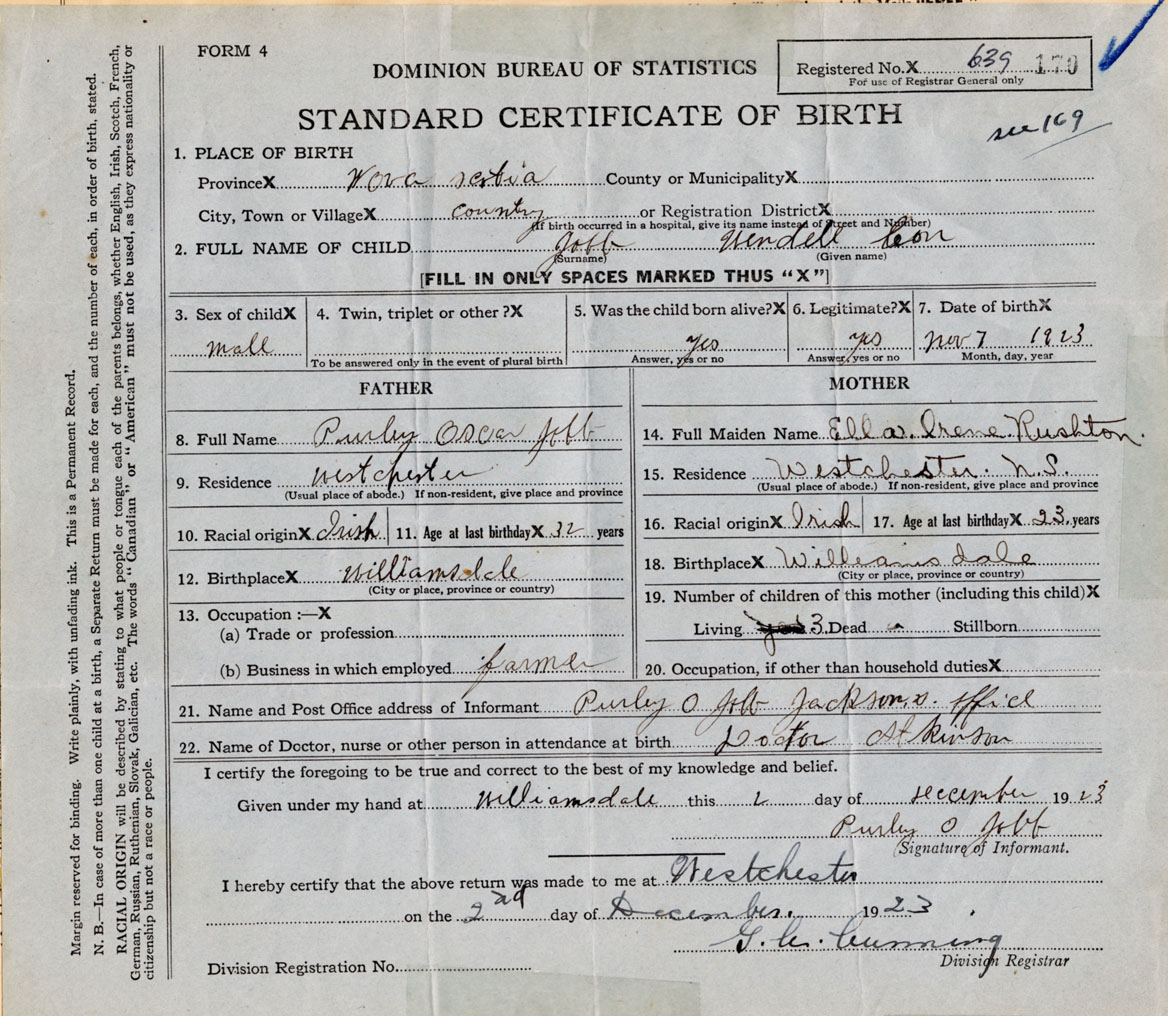 FORM 4
DOMINION BUREAU OF STATISTICS
Registered No.X 639 170
For use of Registrar General only
STANDARD CERTIFICATE OF BIRTH
see 169
1. PLACE OF BIRTH
ProvinceX Nova scotia County or MunicipalityX
City, Town or VillageX country or Registration DistrictX
(If birth occurred in a hospital, give its name instead of Street and Number)
2. FULL NAME OF CHILD Jobb Wendell Leon
(Surname) (Given name)
[FILL IN ONLY SPACES MARKED THUS "X"]
3. Sex of childX 4. Twin, triplet or other ?X 5. Was the child born alive?X 6. Legitimate?X 7. Date of birthX
mall Yes yes Nov 7 1923
To be answered only in the event of plural birth Answer, yes or no Answer, yes or no Month, day, year
FATHER
8. Full Name Purley Oscar Jobb
9. Residence Westchester
(Usual place of abode.) If non-resident, give place and province
10. Racial originX Irish 11. Age at last birthdayX 32 years
12. BirthplaceX Williamsdale
(City or place, province or country)
13. Occupation :—X
(a) Trade or profession
(b) Business in which employed farmer
MOTHER
14. Full Maiden Name Ella Irene Rushton.
15. Residence Westchester. N.S.
(Usual place of abode.) If non-resident, give place and province
16. Racial originX Irish 17. Age at last birthdayX 23 years
18. BirthplaceX Williamsdale
(City or place, province or country)
19. Number of children of this mother (including this child)X
Living 3 Dead Stillborn
20. Occupation, if other than household dutiesX
21. Name and Post Office address of Informant Purley O Jobb Jacksons. office
22. Name of Doctor, nurse or other person in attendance at birth Doctor Atkinson
I certify the foregoing to be true and correct to the best of my knowledge and belief.
Given under my hand at Williamsdale this 2 day of december 1923
Purley O Jobb
Signature of Informant.
I hereby certify that the above return was made to me at Westchester
on the 2nd day of December. 1923.
Division Registrar
Division Registration No.
Margin reserved for binding. Write plainly, with unfading ink. This is a Permanent Record.
N. B.—In case of more than one child at a birth, a Separate Return must be made for each, and the number of each, in order of birth, stated.
RACIAL ORIGIN will be described by stating to what people or tongue each of the parents belongs, whether English, Irish, Scotch, French,
German, Russian, Ruthenian, Slovak, Galician, etc. The words "Canadian" or "American" must not be used, as they express nationality or
citizenship but not a race or people.